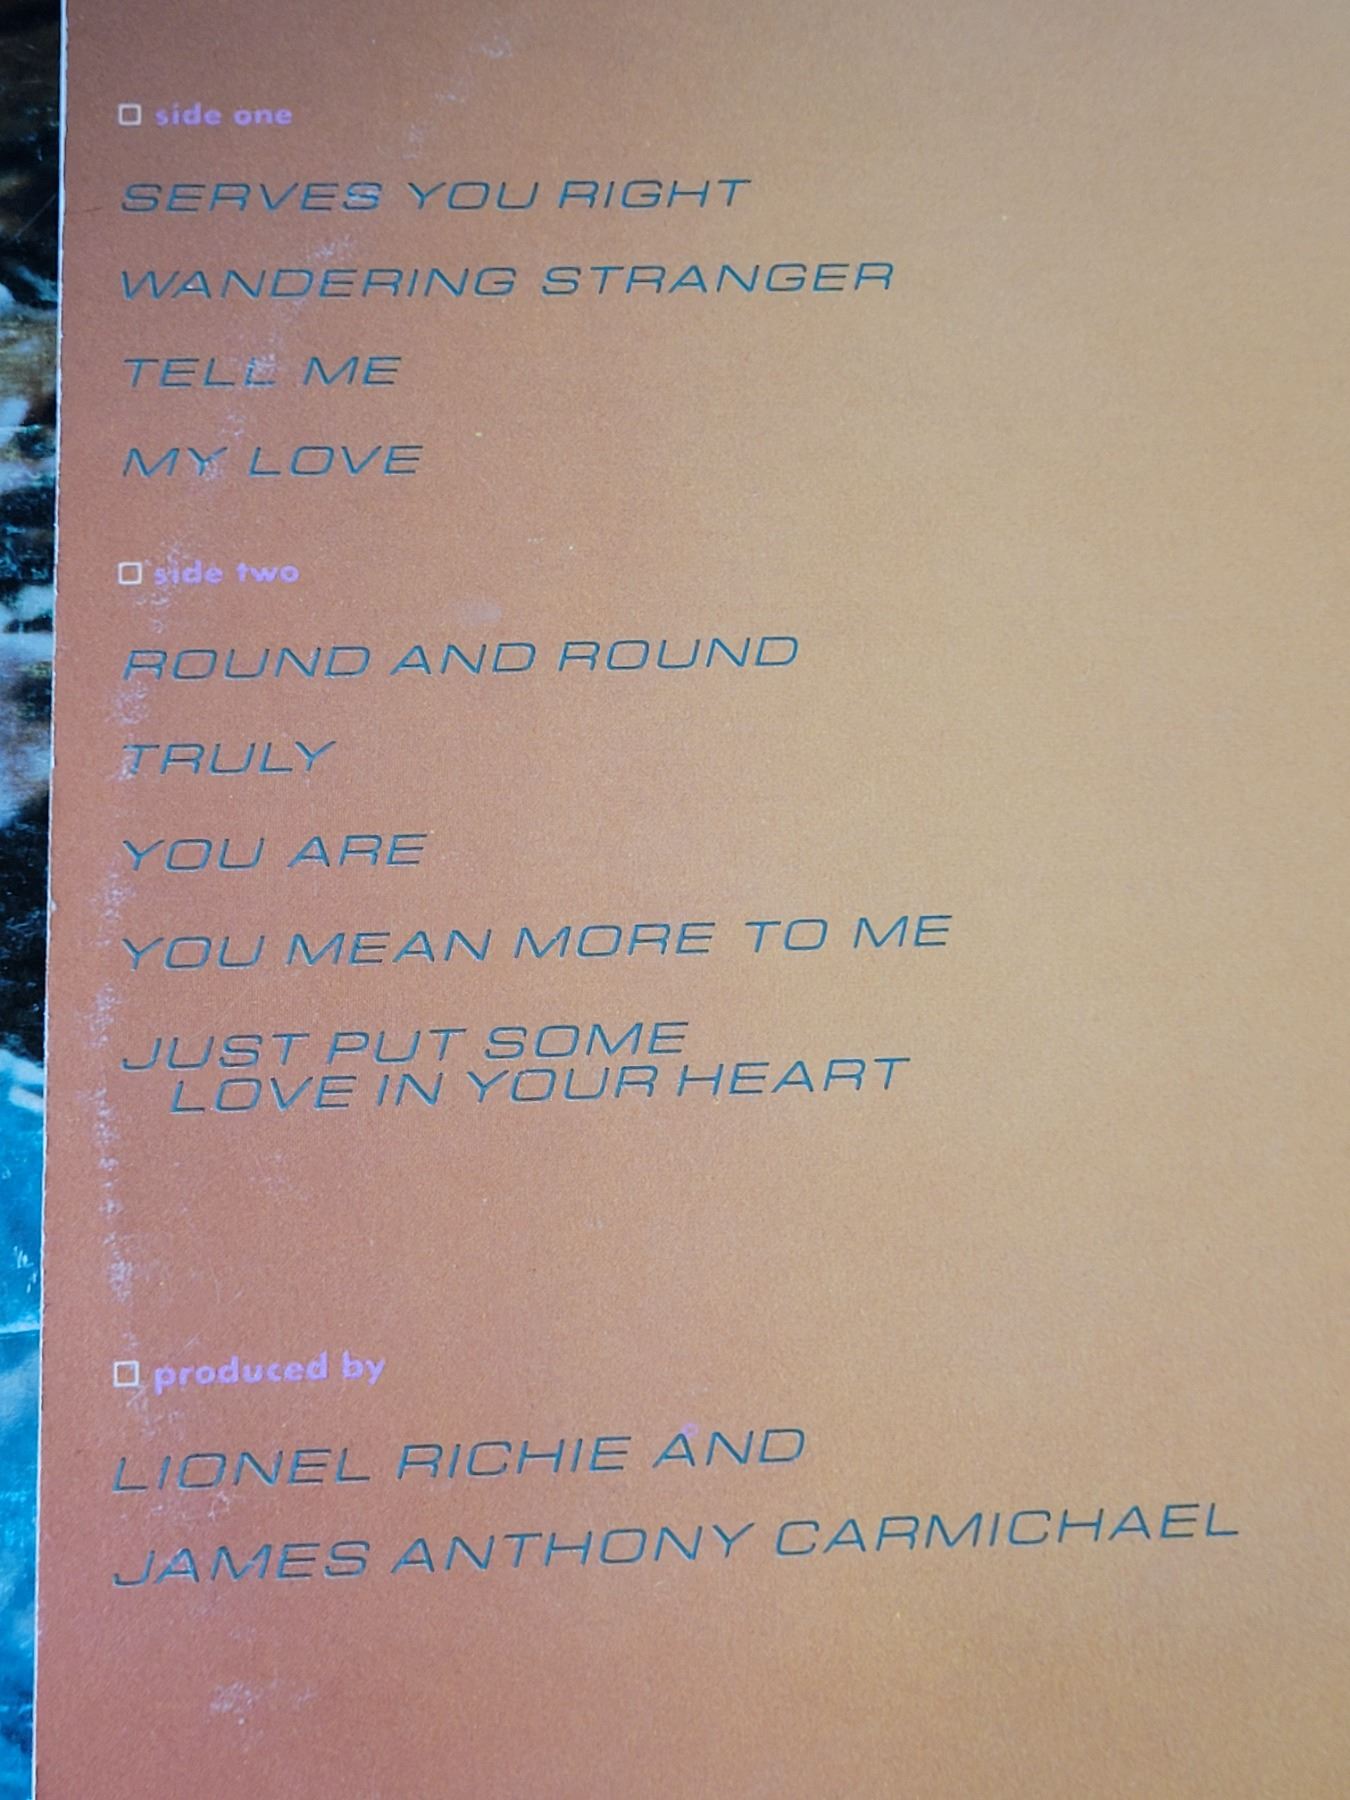 side one
SERVES YOU RIGHT
WANDERING STRANGER
TELL ME
MY LOVE
side two
ROUND AND ROUND
TRULY
YOU ARE
YOU MEAN MORE TO ME
JUST PUT SOME
LOVE IN YOUR HEART
produced by
LIONEL RICHIE AND
JAMES ANTHONY CARMICHAEL